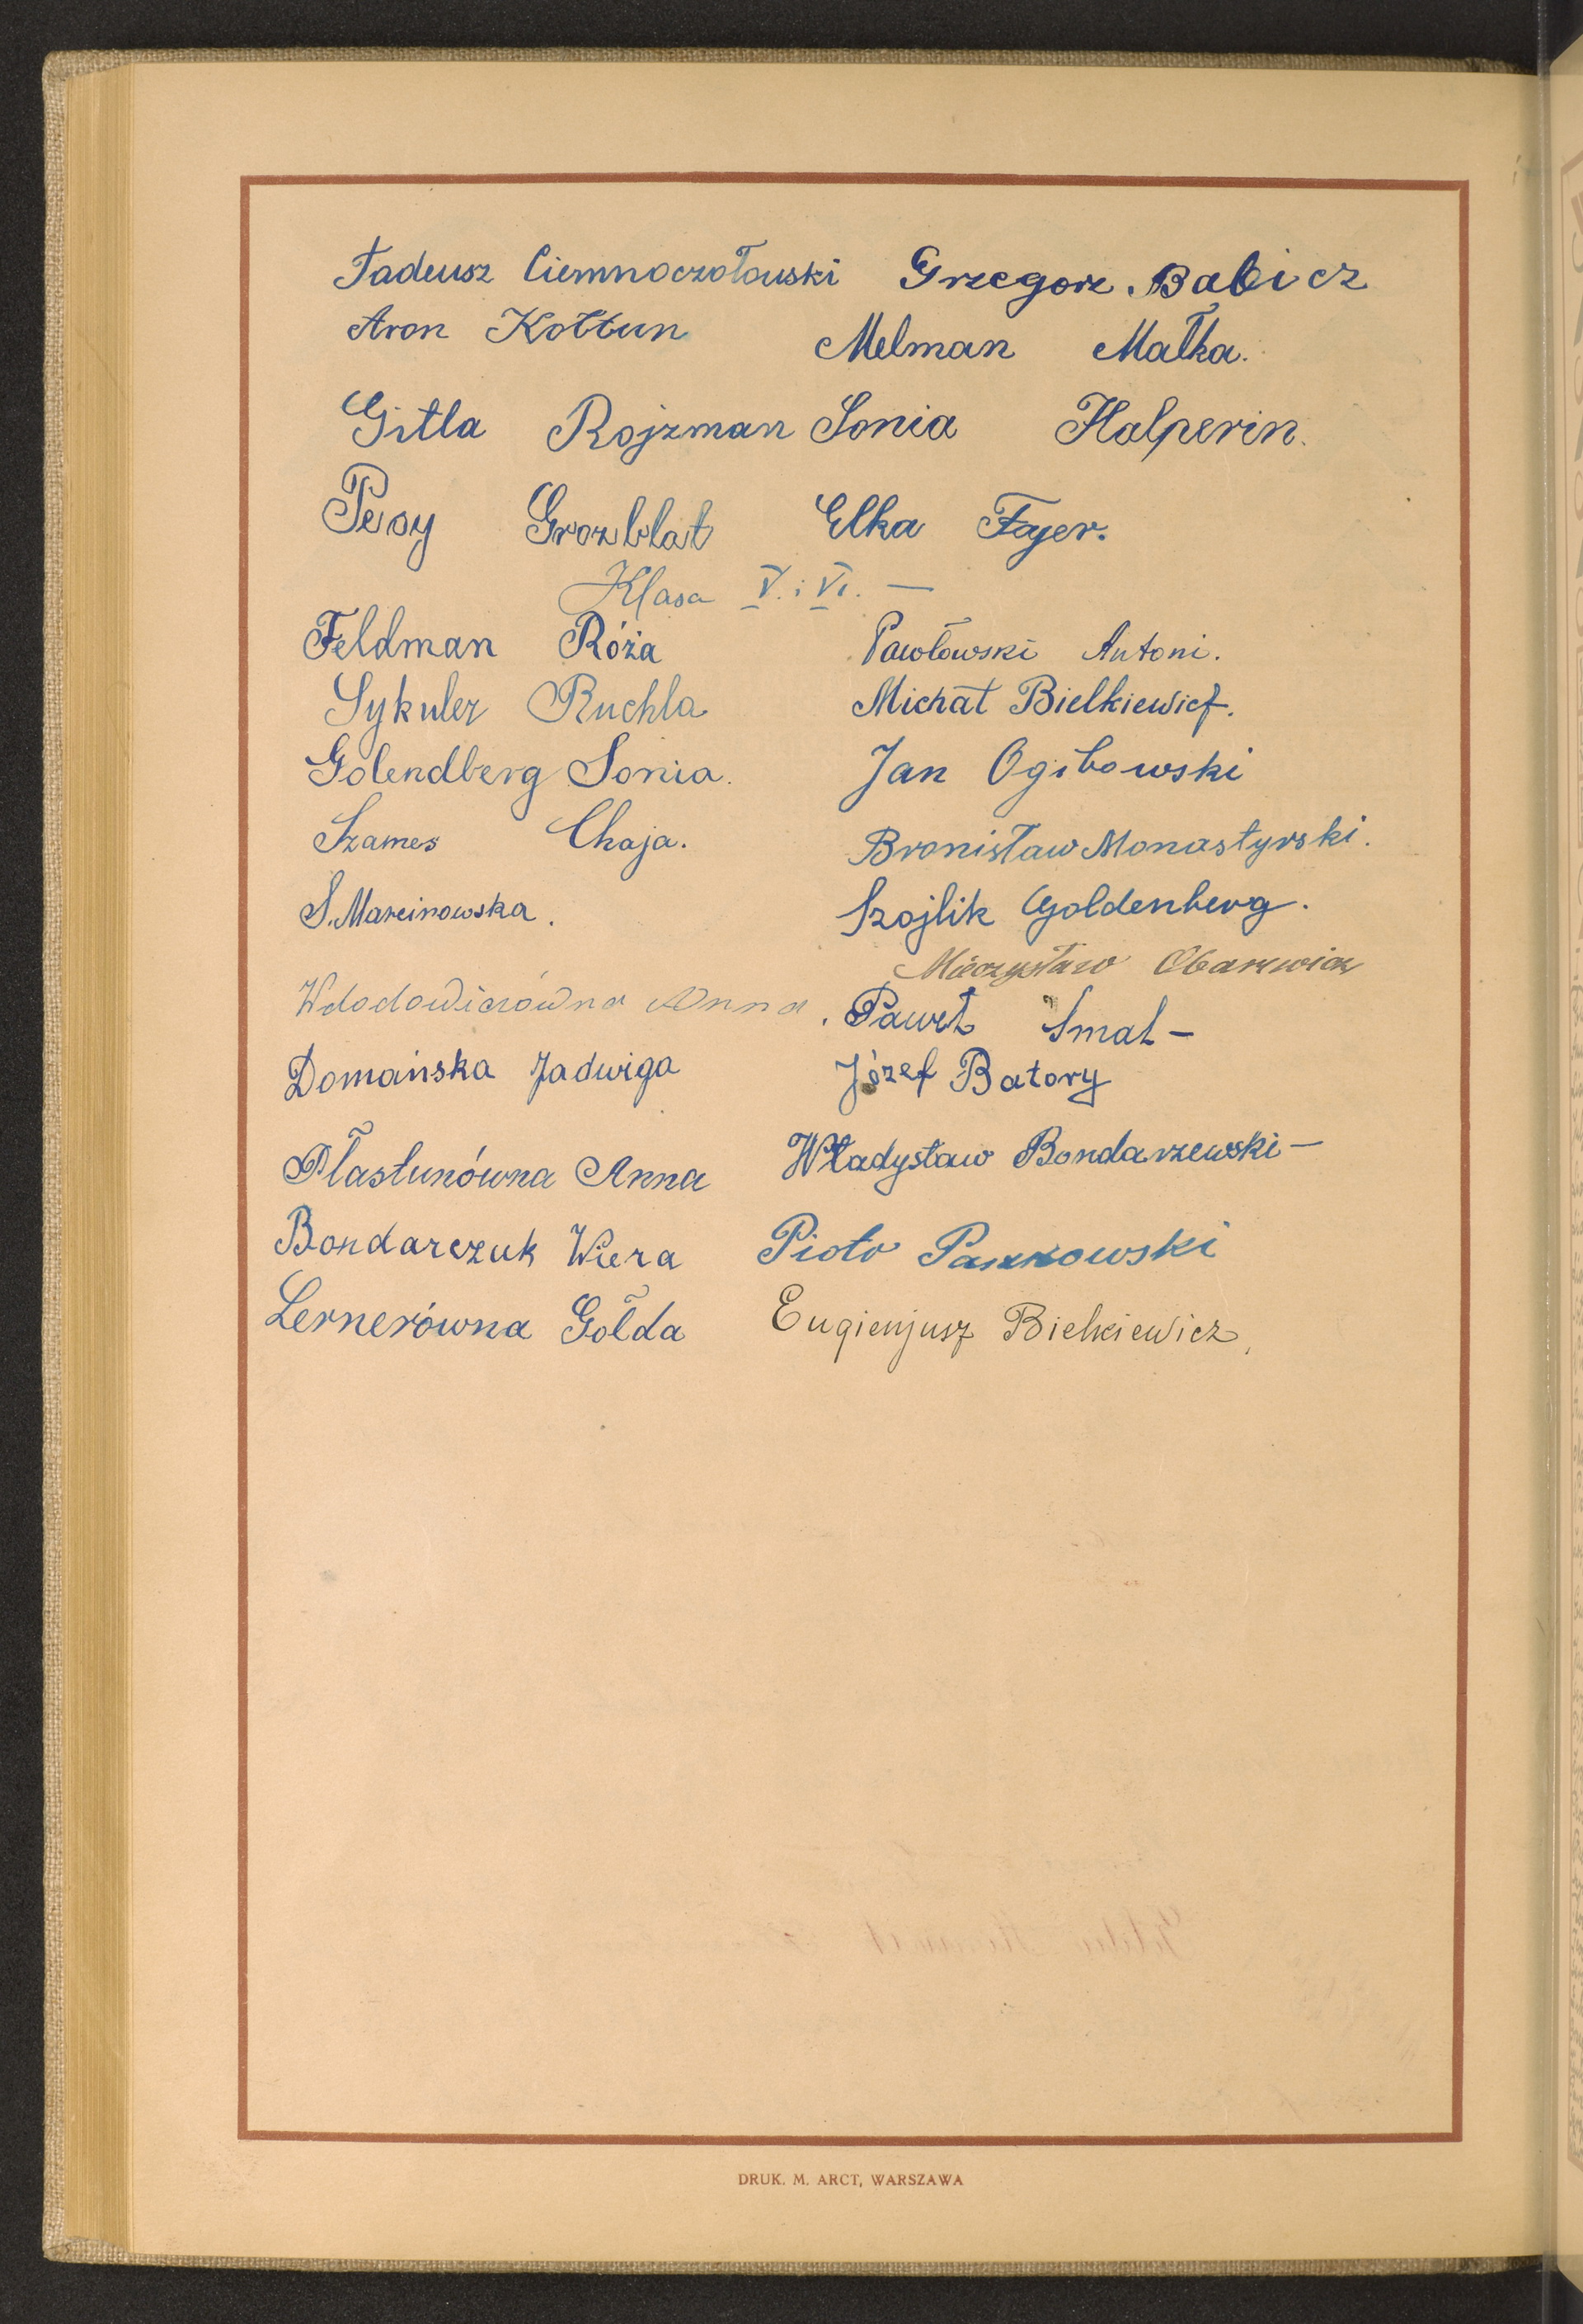 Tadeusz Ciemnoczołowski Grzegorz Babicz
Aron Kołtun Melman Małka.
Gitla Rojzman Sonia Halperin.
Grozblat Elka Fajer.
Klasa V. i VI. —
Feldman Róża Pawłowski Antoni.
Sykuler Ruchla Michał Bielkiewicz.
Golendberg Sonia. Jan Ogibowski
Szames Chaja. Bronisław Monastyrski.
S. Marcinowska. Szojlik Goldenberg.
Mieczysław
Wdodowiczówna Anna. Paweł Smal —
Domańska Jadwiga Józef Batory
Płastunówna Anna Władysław Bondarzewski —
Bondarczuk Wiera Piotr
Lernerówna Gołda Eugienjusz Bielkiewicz.
DRUK. M. ARCT, WARSZAWA